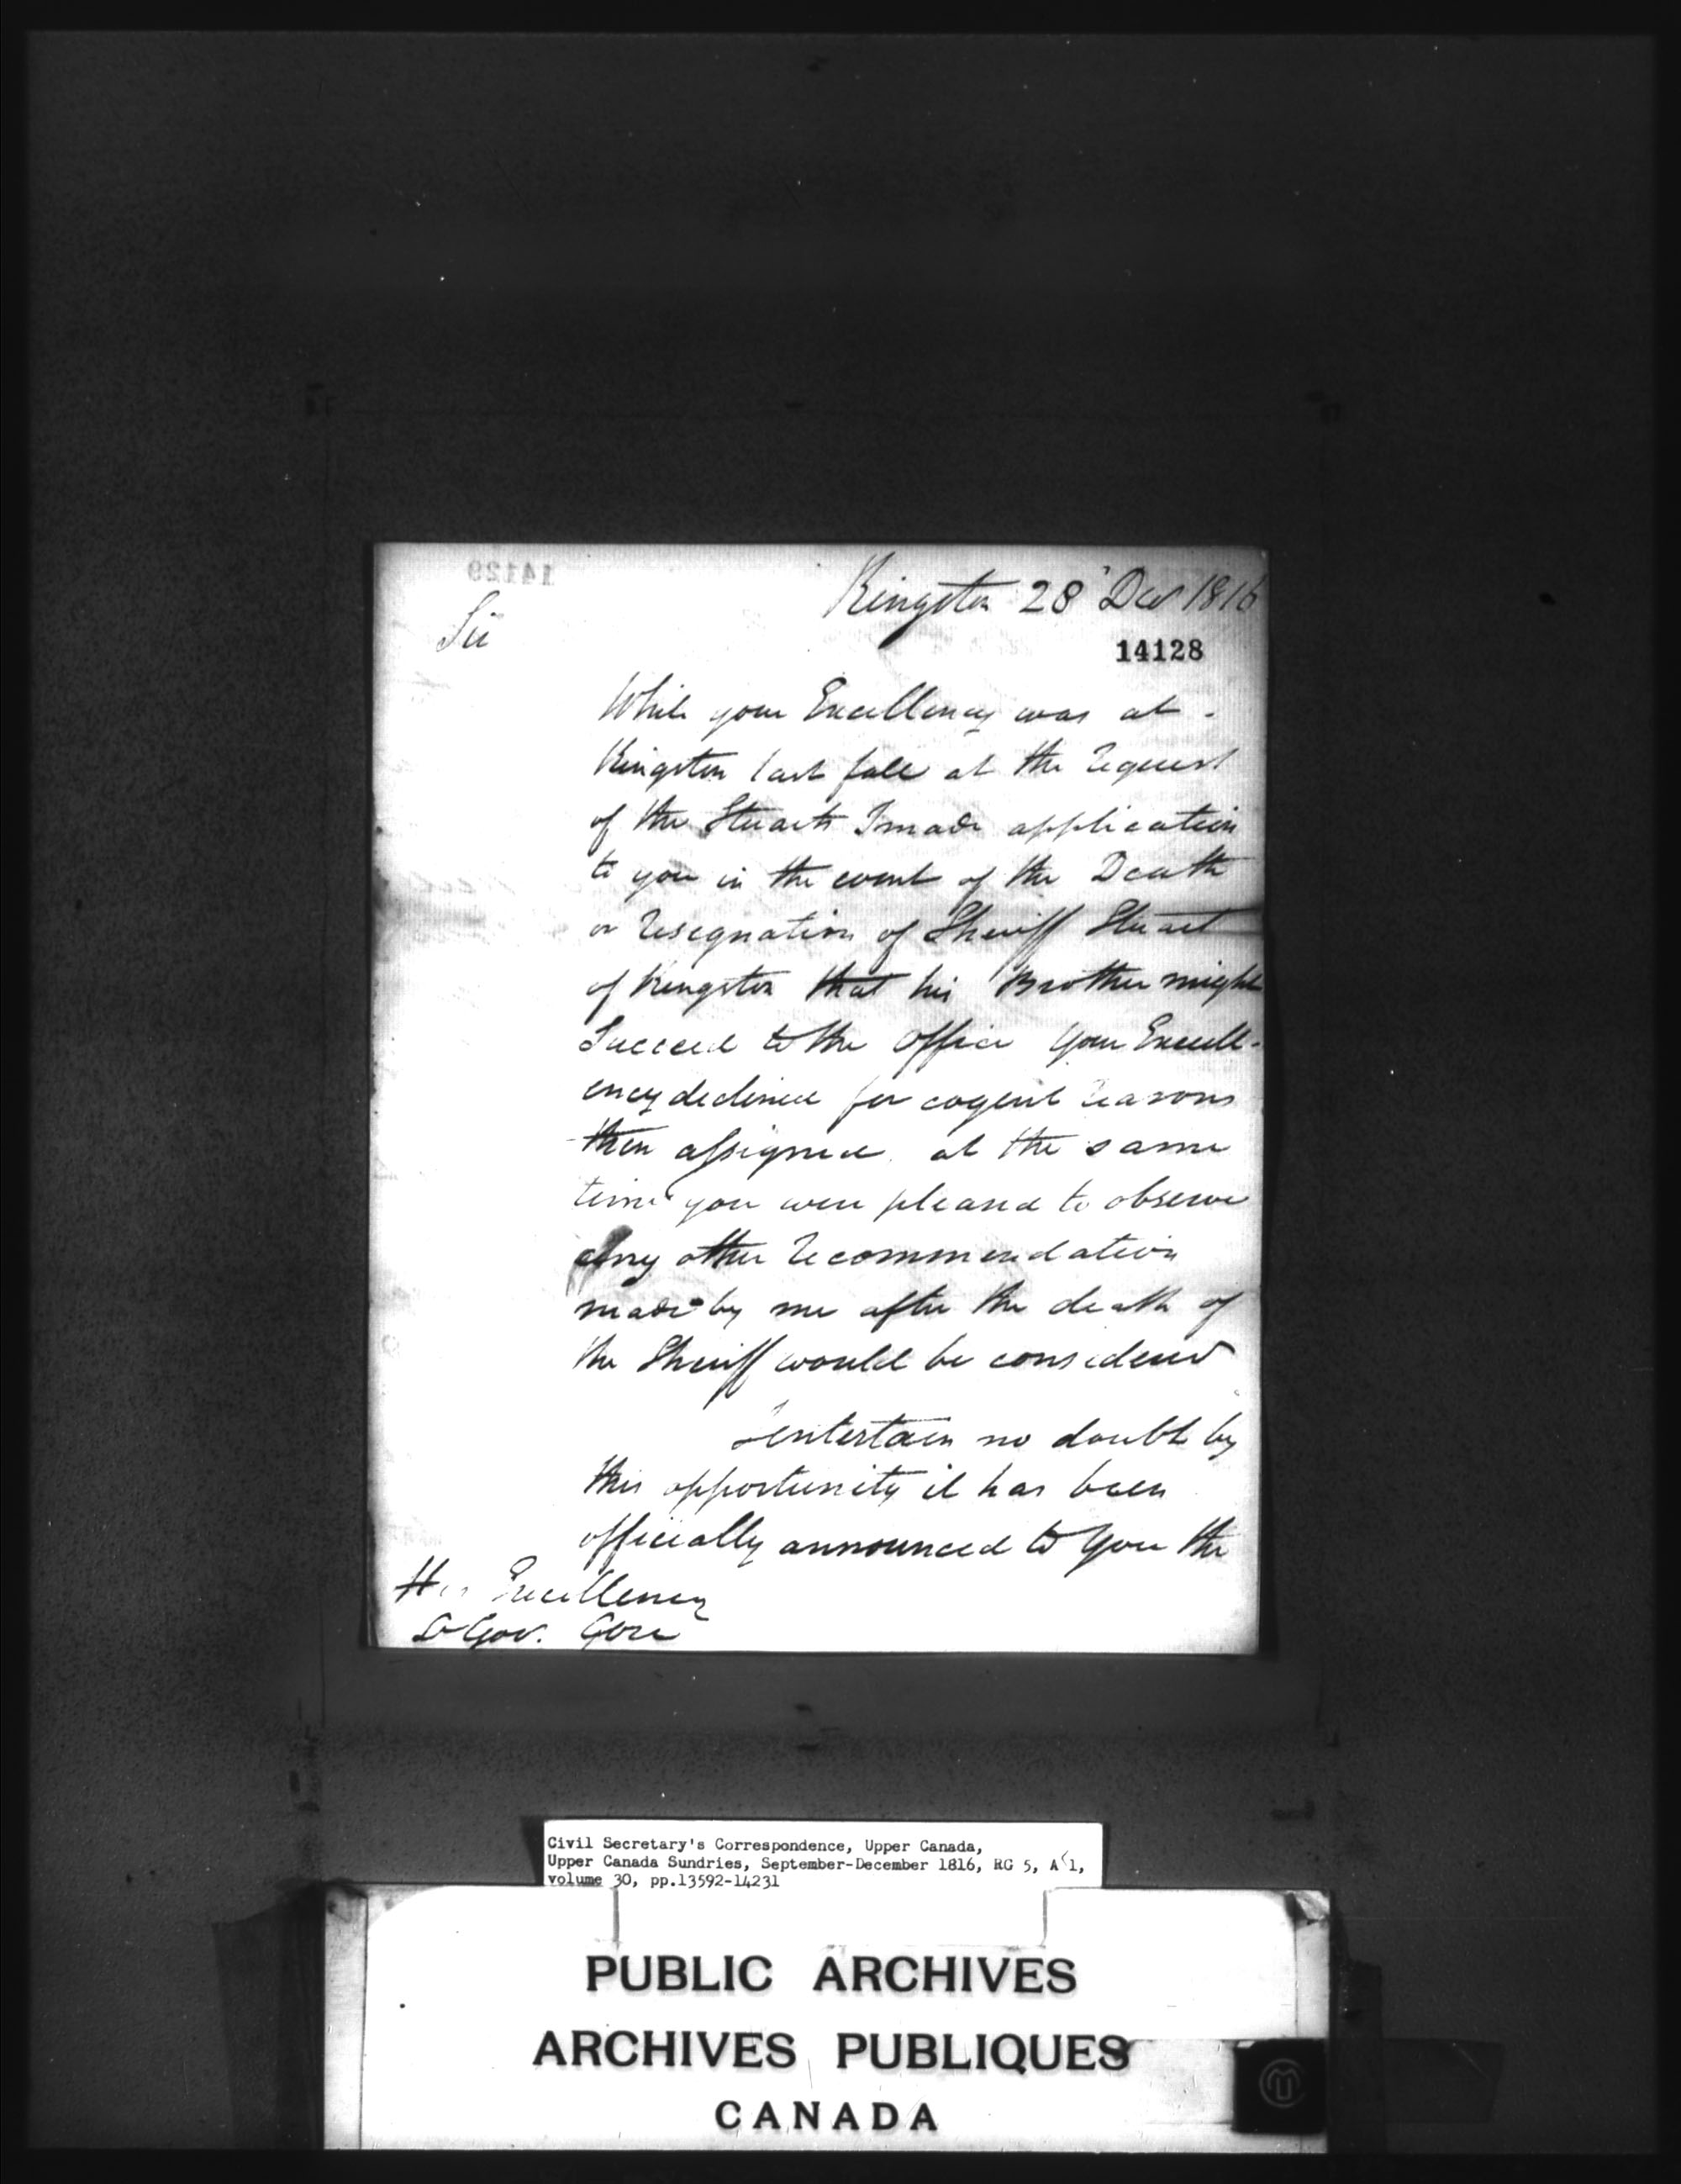 Kingston 28 Decr 1816
14129
Sir
14128
While your Excellency was at
Kingston last fall at the request
of the Stuarts I made application
to you in the event of the Death
or resignation of Sheriff Stuart
of Kingston that his Brother might
Succeed to the Office Your Excell-
ency declined for cogent reasons
then assigned. at the same
time you were pleased to observe
any other recommendation
made by me after the death of
the Sheriff would be considered
I entertain no doubt by
this opportunity it has been
officially announced to you the
His Excellency
Lt Gov. Gore
Civil Secretary's Correspondence, Upper Canada,
Upper Canada Sundries, September-December 1816, RG 5, A 1,
volume 30, pp.13592-14231
PUBLIC ARCHIVES
ARCHIVES PUBLIQUES
CANADA